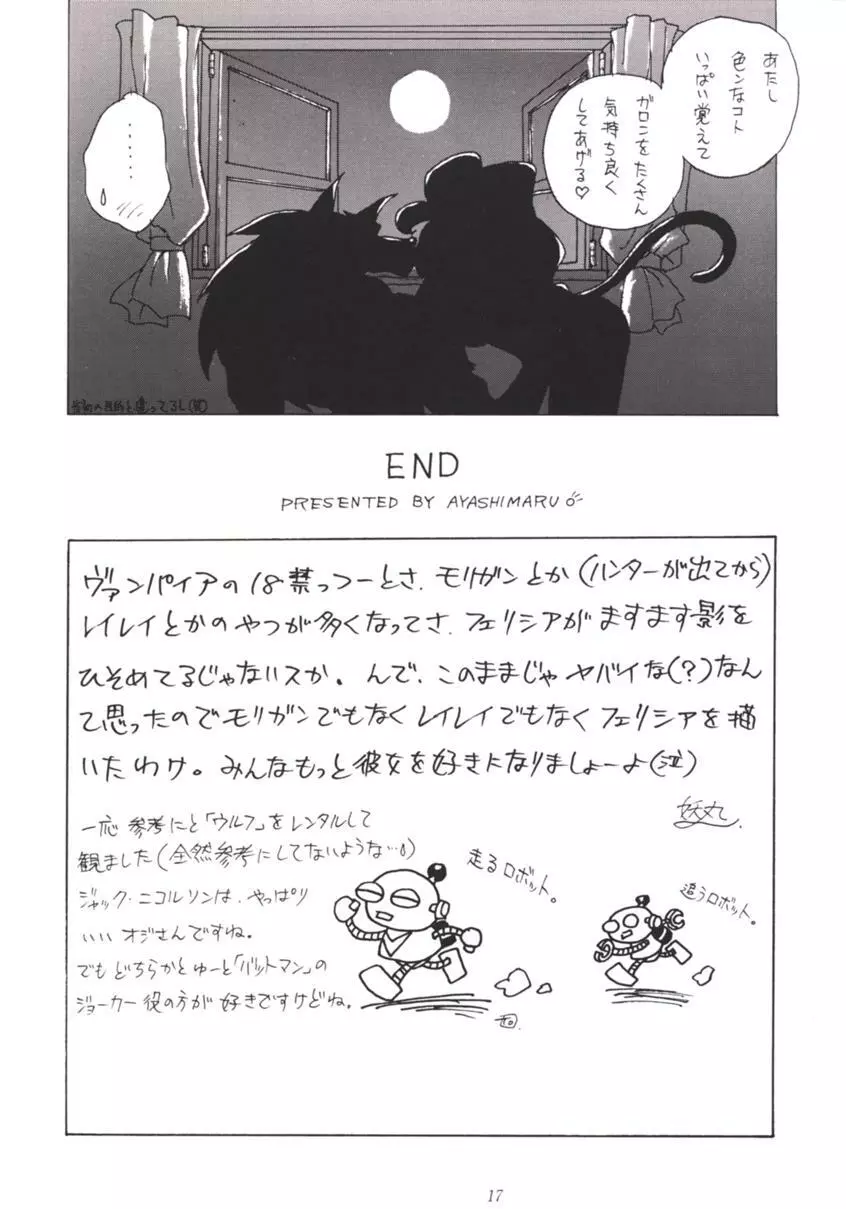 あたし
色ンなコト
いっぱい覚えて
ガロンをたくさん
気持ち良く
してあげる♡
・・・・・・
END
PRESENTED BY AYASHIMARU
ヴァンパイアの18禁っつーとさ、モリガンとか(ハンターが出てから)
レイレイとかのやつが多くなってさ、フェリシアがますます影を
ひそめてるじゃないスか。んで、このままじゃヤバイな(?)なん
て思ったのでモリガンでもなくレイレイでもなくフェリシアを描
いたわけ。みんなもっと彼女を好きになりましょーよ(泣)
妖丸
一応 参考にと「ウルフ」をレンタルして
観ました(全然参考にしてないような…)
ジャック・ニコルソンは、やっぱり
いい オジさんですね。
でもどちらかとゆーと「バットマン」の
ジョーカー役の方が好きですけどね。
走るロボット。
追うロボット。
17